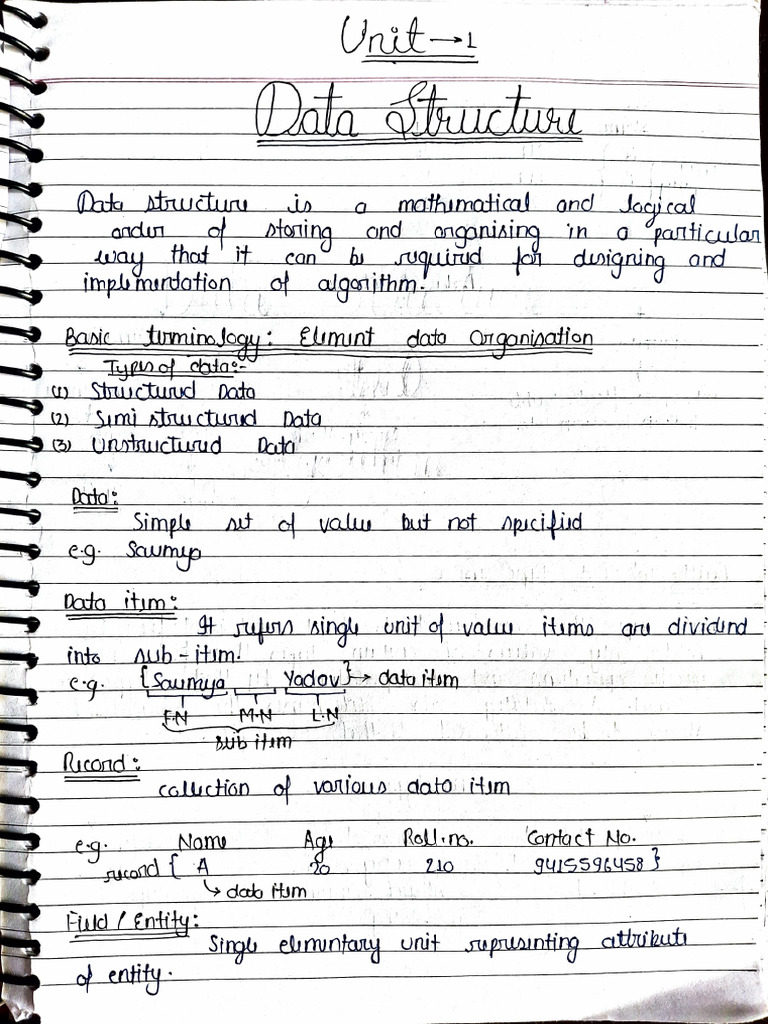 Unit → 1
Data Structure
Data structure is a mathematical and logical
order of storing and organising in a particular
way that it can be required for designing and
implementation of algorithm.
Basic terminology: Element data Organisation
Types of data:-
(1) Structured Data
(2) Semi structured Data
(3) Unstructured Data
Data:
Simple set of value but not specified
e.g. Saumya
Data item:
It refers single unit of value items are divided
into sub-item.
e.g. {Saumya Yadav} → data item
F.N M.N L.N
sub item
Record:
collection of various data item
e.g. Name Age Roll.no. Contact No.
record { A 20 210 9415596458 }
↳ data item
Field / Entity:
Single elementary unit representing attribute
of entity.